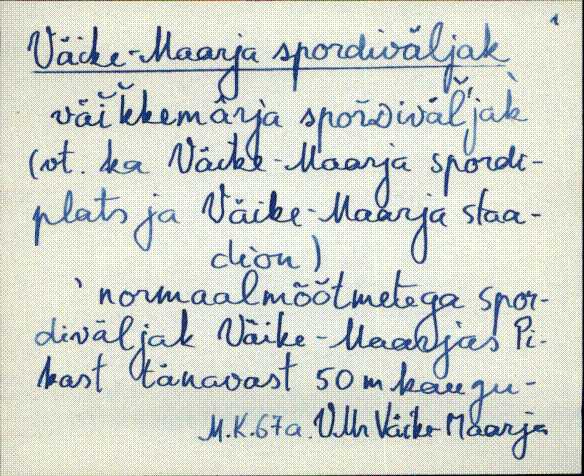 1
Väike-Maarja spordiväljak
väikkemàrja spordiväĺjàk
(vt. ka Väike-Maarja spordi-
plats ja Väike-Maarja staa-
dion)
normaalmõõtmetega spor-
diväljak Väike-Maarjas Pi-
kast tänavast 50 m kaugu-
M.K.67a. VMr Väike Maarja